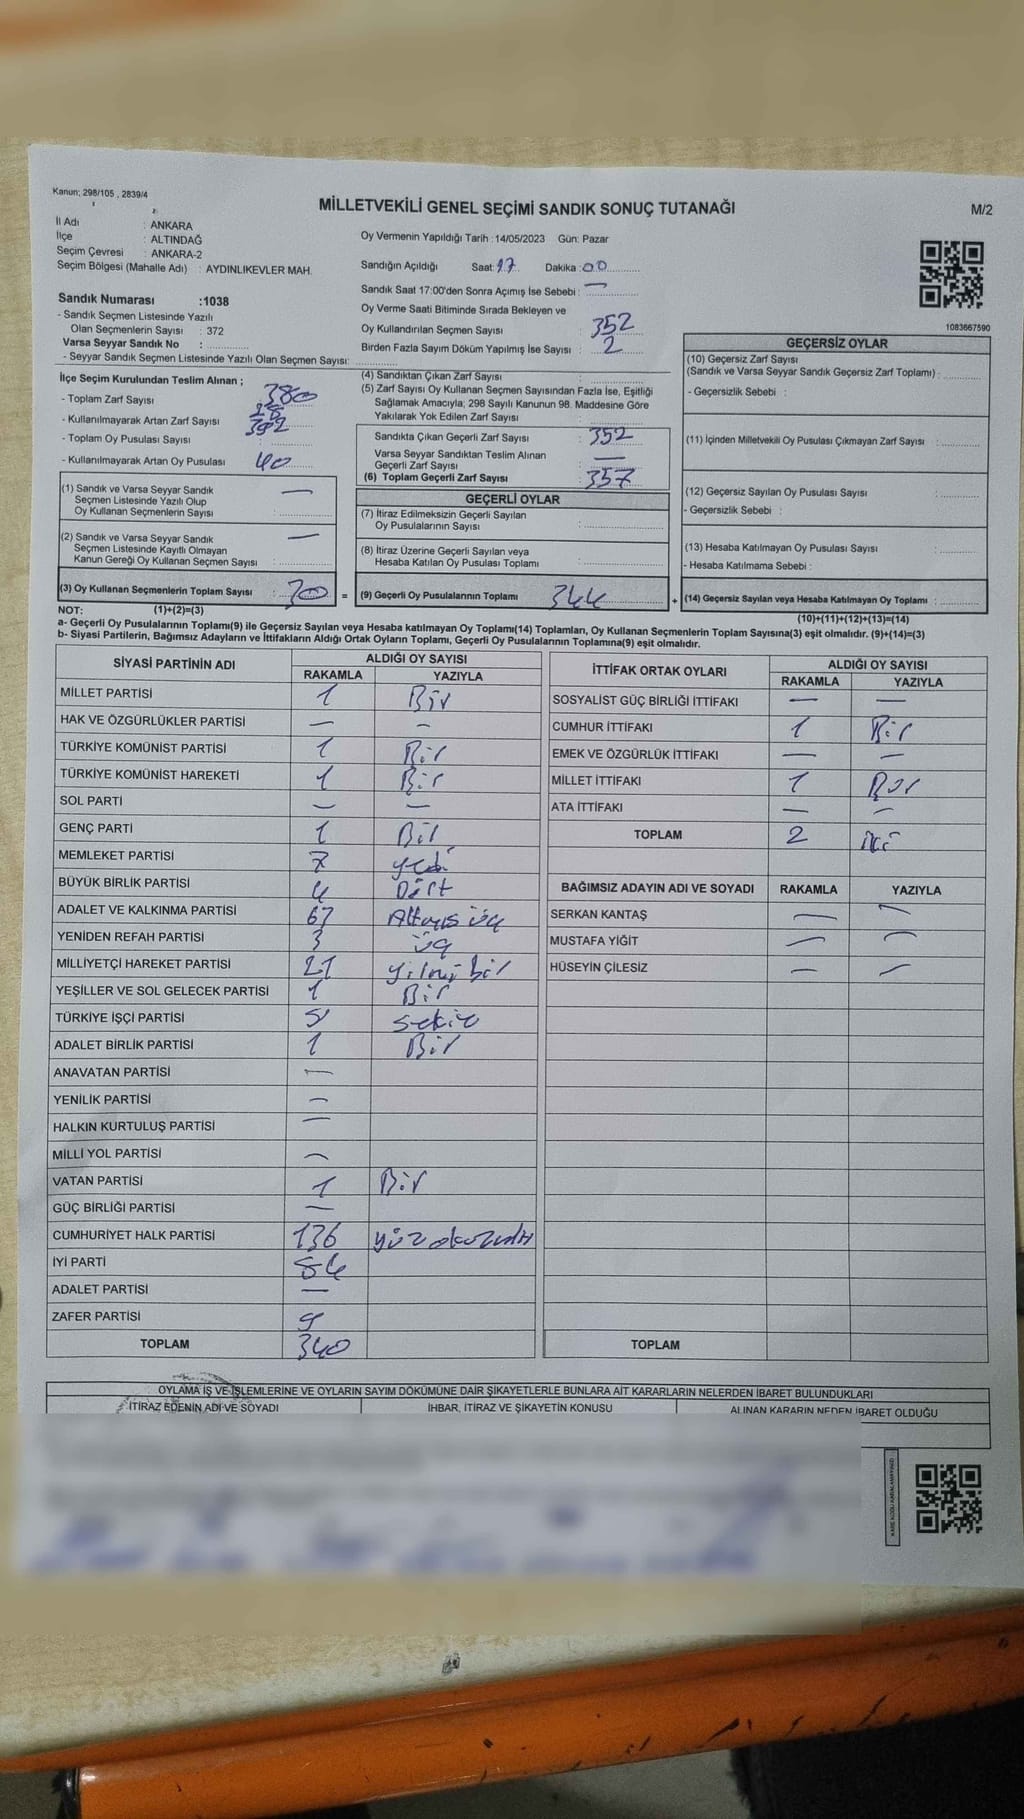 Kanun; 298/105 , 2839/4
MİLLETVEKİLİ GENEL SEÇİMİ SANDIK SONUÇ TUTANAĞI
M/2
İl Adı : ANKARA
İlçe : ALTINDAĞ
Seçim Çevresi : ANKARA-2
Seçim Bölgesi (Mahalle Adı) : AYDINLIKEVLER MAH.
Sandık Numarası :1038
- Sandık Seçmen Listesinde Yazılı
Olan Seçmenlerin Sayısı : 372
Varsa Seyyar Sandık No :
- Seyyar Sandık Seçmen Listesinde Yazılı Olan Seçmen Sayısı:
Oy Vermenin Yapıldığı Tarih : 14/05/2023 Gün: Pazar
Sandığın Açıldığı Saat: 17 Dakika : 00
Sandık Saat 17:00'den Sonra Açımış İse Sebebi : —
Oy Verme Saati Bitiminde Sırada Bekleyen ve
Oy Kullandırılan Seçmen Sayısı : 352
Birden Fazla Sayım Döküm Yapılmış İse Sayısı : 2
1083667590
İlçe Seçim Kurulundan Teslim Alınan ;
- Toplam Zarf Sayısı : 380
- Kullanılmayarak Artan Zarf Sayısı : 28
- Toplam Oy Pusulası Sayısı : 392
- Kullanılmayarak Artan Oy Pusulası 40
(1) Sandık ve Varsa Seyyar Sandık
Seçmen Listesinde Yazılı Olup
Oy Kullanan Seçmenlerin Sayısı : —
(2) Sandık ve Varsa Seyyar Sandık
Seçmen Listesinde Kayıtlı Olmayan
Kanun Gereği Oy Kullanan Seçmen Sayısı : —
(3) Oy Kullanan Seçmenlerin Toplam Sayısı : =
(4) Sandıktan Çıkan Zarf Sayısı :
(5) Zarf Sayısı Oy Kullanan Seçmen Sayısından Fazla İse, Eşitliği
Sağlamak Amacıyla; 298 Sayılı Kanunun 98. Maddesine Göre
Yakılarak Yok Edilen Zarf Sayısı :
Sandıkta Çıkan Geçerli Zarf Sayısı : 352
Varsa Seyyar Sandıktan Teslim Alınan
Geçerli Zarf Sayısı : —
(6) Toplam Geçerli Zarf Sayısı : 357
GEÇERLİ OYLAR
(7) İtiraz Edilmeksizin Geçerli Sayılan
Oy Pusulalarının Sayısı :
(8) İtiraz Üzerine Geçerli Sayılan veya
Hesaba Katılan Oy Pusulası Toplamı :
(9) Geçerli Oy Pusulalarının Toplamı : 344 +
GEÇERSİZ OYLAR
(10) Geçersiz Zarf Sayısı
(Sandık ve Varsa Seyyar Sandık Geçersiz Zarf Toplamı) :
- Geçersizlik Sebebi :
(11) İçinden Milletvekili Oy Pusulası Çıkmayan Zarf Sayısı :
(12) Geçersiz Sayılan Oy Pusulası Sayısı :
- Geçersizlik Sebebi :
(13) Hesaba Katılmayan Oy Pusulası Sayısı :
- Hesaba Katılmama Sebebi :
(14) Geçersiz Sayılan veya Hesaba Katılmayan Oy Toplamı :
NOT: (1)+(2)=(3) (10)+(11)+(12)+(13)=(14)
a- Geçerli Oy Pusulalarının Toplamı(9) ile Geçersiz Sayılan veya Hesaba katılmayan Oy Toplamı(14) Toplamları, Oy Kullanan Seçmenlerin Toplam Sayısına(3) eşit olmalıdır. (9)+(14)=(3)
b- Siyasi Partilerin, Bağımsız Adayların ve İttifakların Aldığı Ortak Oyların Toplamı, Geçerli Oy Pusulalarının Toplamına(9) eşit olmalıdır.
SİYASİ PARTİNİN ADI ALDIĞI OY SAYISI
RAKAMLA YAZIYLA
MİLLET PARTİSİ 1 Bir
HAK VE ÖZGÜRLÜKLER PARTİSİ — —
TÜRKİYE KOMÜNİST PARTİSİ 1 Bir
TÜRKİYE KOMÜNİST HAREKETİ 1 Bir
SOL PARTİ — —
GENÇ PARTİ 1 Bir
MEMLEKET PARTİSİ 7 yedi
BÜYÜK BİRLİK PARTİSİ 4 Dört
ADALET VE KALKINMA PARTİSİ 63 Altmış üç
YENİDEN REFAH PARTİSİ 3 üç
MİLLİYETÇİ HAREKET PARTİSİ 21 yirmi bir
YEŞİLLER VE SOL GELECEK PARTİSİ 1 Bir
TÜRKİYE İŞÇİ PARTİSİ 8 sekiz
ADALET BİRLİK PARTİSİ 1 Bir
ANAVATAN PARTİSİ —
YENİLİK PARTİSİ —
HALKIN KURTULUŞ PARTİSİ —
MİLLİ YOL PARTİSİ —
VATAN PARTİSİ 1 Bir
GÜÇ BİRLİĞİ PARTİSİ —
CUMHURİYET HALK PARTİSİ 136 yüzotuzaltı
İYİ PARTİ 84
ADALET PARTİSİ —
ZAFER PARTİSİ 9
TOPLAM 340
İTTİFAK ORTAK OYLARI ALDIĞI OY SAYISI
RAKAMLA YAZIYLA
SOSYALİST GÜÇ BİRLİĞİ İTTİFAKI — —
CUMHUR İTTİFAKI 1 Bir
EMEK VE ÖZGÜRLÜK İTTİFAKI — —
MİLLET İTTİFAKI 1 Bir
ATA İTTİFAKI — —
TOPLAM 2 iki
BAĞIMSIZ ADAYIN ADI VE SOYADI RAKAMLA YAZIYLA
SERKAN KANTAŞ — —
MUSTAFA YİĞİT — —
HÜSEYİN ÇİLESİZ — —
TOPLAM
OYLAMA İŞ VE İŞLEMLERİNE VE OYLARIN SAYIM DÖKÜMÜNE DAİR ŞİKAYETLERLE BUNLARA AİT KARARLARIN NELERDEN İBARET BULUNDUKLARI
İTİRAZ EDENİN ADI VE SOYADI İHBAR, İTİRAZ VE ŞİKAYETİN KONUSU ALINAN KARARIN NEDEN İBARET OLDUĞU